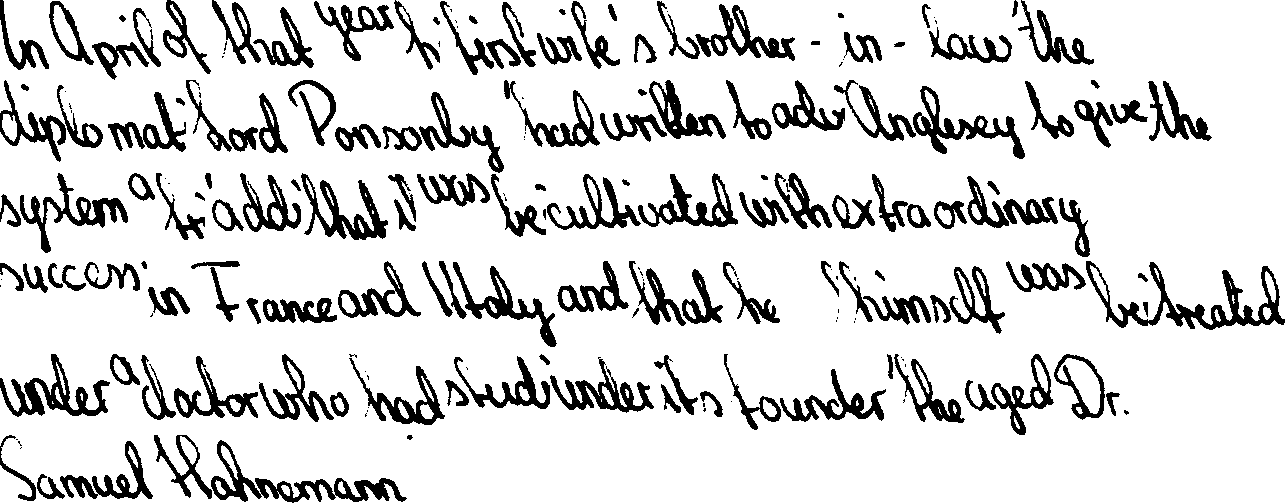 In April of that year hi' first wife's brother-in-law the
diplomat Lord Ponsonby had written to advi' Anglesey to give the
system a tri' addi' that it was bei' cultivated with extraordinary
success in France and Italy and that he himself was bei' treated
under a doctor who had studi' under its founder the aged Dr.
Samuel Hahnemann